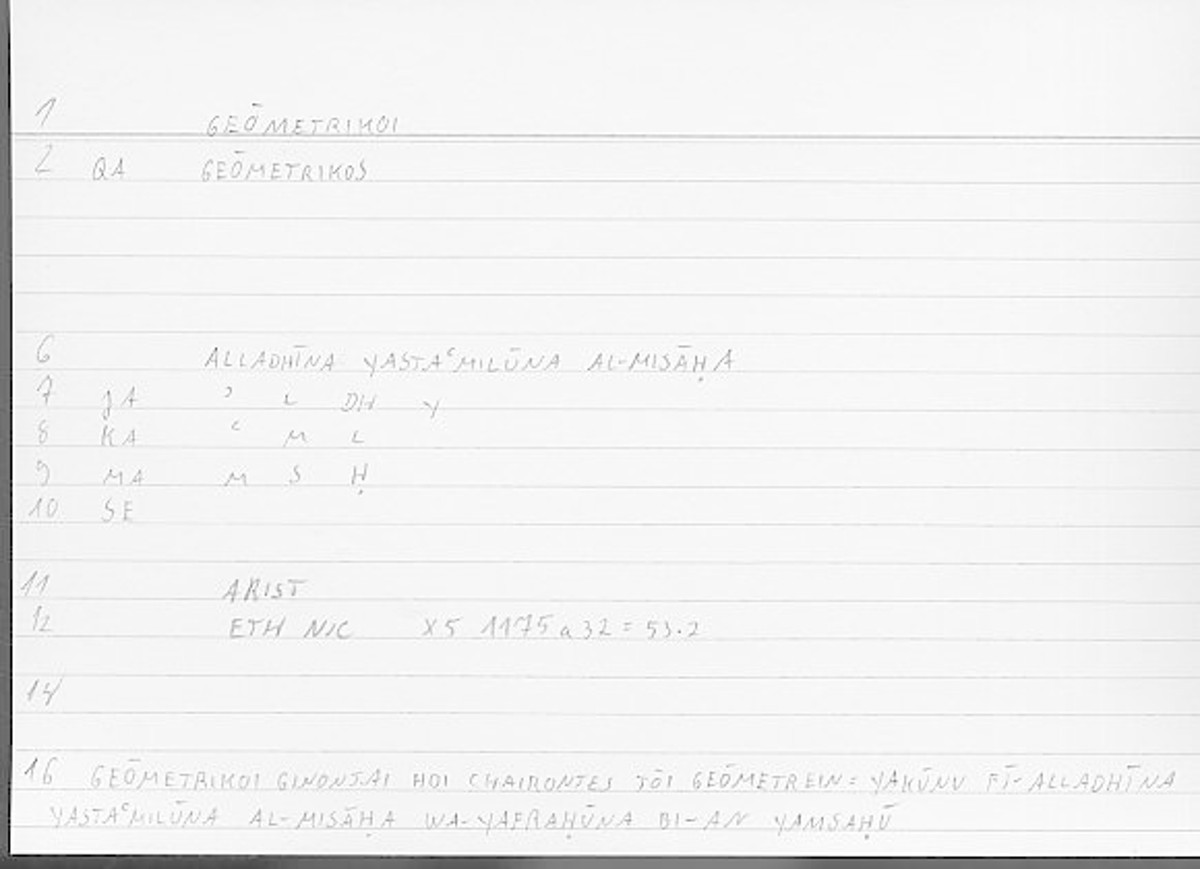 1 GEŌMETRIKOI
2 QA GEŌMETRIKOS
6 ALLADHĪNA YASTAʿMILŪNA AL-MISĀḤA
7 JA ʾ L DH Y
8 KA ʿ M L
9 MA M S Ḥ
10 SE
11 ARIST
12 ETH NIC X5 1175a32 = 53.2
14
16 GEŌMETRIKOI GINONTAI HOI CHAIRONTES TŌI GEŌMETREIN = YAKŪNU FĪ-ALLADHĪNA
YASTAʿMILŪNA AL-MISĀḤA WA-YAFRAḤŪNA BI-AN YAMSAḤŪ